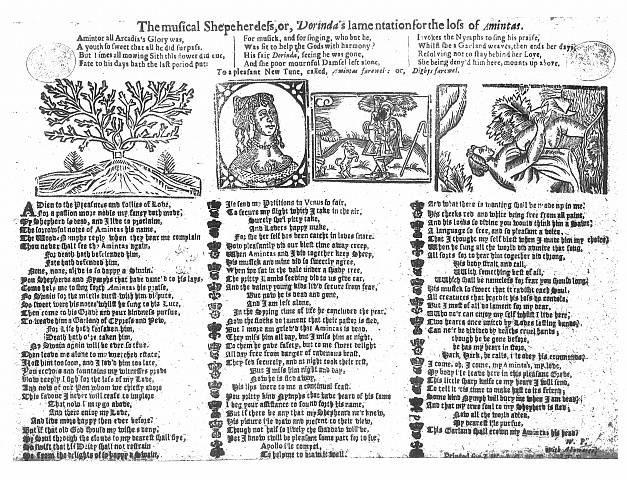 The musical Shepeherdess, or, Dorinda's lamentation for the loss of Amintas.
Amintor all Arcadia's Glory was,
A youth so sweet that all he did surpass.
But Times all mowing Sith this flower did cut,
Fate to his days hath the last period put:
For musick, and for singing, who but he,
Was fit to help the Gods with harmony?
His fair Dorinda, seeing he was gone,
And she poor mournful Damsel left alone,
Invokes the Nymphs to sing his praise,
Whilst she a Garland weaves, then ends her days;
Resolving not to stay behind her Love,
She being deny'd him here, mounts up above.
To a pleasant New Tune, called, Amintas farewel: or, Digbys farewel.
ADieu to the Pleasures and follies of Love,
For a passion more noble my fancy doth move;
My Shepherd is dead, and I live to proclaim,
The sorrowful notes of Amintas his name,
The Wood-Nymphs reply when they hear me complain
Thou never shall see thy Amintas again,
For death hath befriended him,
Fate hath defended him,
None, none, alive is so happy a Swain.
You Shepherds and Nymphs that have danc'd to his lays,
Come help me to sing forth Amintas his praise,
No Swain for the
So sweet were his notes whilst he sung to his Lute,
Then come to his Grave and your kindness pursue,
To weave him a Garland of Cypress and Yew,
For Life hath forsaken him,
Death hath o'er taken him,
No Swain again will be ever so true.
Then leave me alone to my wretched estate,
I lost him too soon, and I lov'd him too late,
You ecchoes and fountains my witnesses prove
How deeply I sigh for the loss of my Love,
And now of our Pan whom we chiefly adore
This favour I never will cease to implore
That now I may go above,
And there enjoy my Love,
And live more happy then ever before?
But if that old God should my wishes deny,
My Soul through the clouds to my dearest shall flye,
So swift that his Deity shall not restrain
Me from the delights of so happy a Swain,
I'le send my Petitions to Venus so fair,
To secure my flight which I take in the air,
Surely she'l pity take,
And Lovers happy make,
For she her self has been caught in loves snare.
How pleasantly did our blest time away creep,
When Amintas and I did together keep sheep,
His musick and mine did so sweetly agree,
When we sat in the vale under a shady tree,
The pretty Lambs feeding did to us give ear,
And the dainty young kids liv'd secure from fear,
But now he is dead and gone,
And I am left alone,
In the spring time of life he concludes the year.
Now the flocks do lament that their pastor is fled,
But I more am griev'd that Amintas is dead,
They miss him all day, but I miss him at night,
To them he gave safety, but to me sweet delight
All day free from danger of ravenous beast,
They fed securely, and at night took their rest,
But I miss him night and day,
Now he is fled away,
His lips were to me a continual feast.
You pretty kind Nymphs that have heard of his fame
I beg your assistance to sound forth his name,
But if there be any that my Shepheard ne'r knew,
His picture I'le draw and present to their view,
Though not half so lively the shaddow will be,
Yet I know will be pleasant some part for to see,
Apollo the
To helping to
And what there is wanting shall be made up in me.
His cheeks red and white being free from all paint,
And his looks so divine you would think him a Saint;
A language so free, and so pleasant a voice
That I thought my self blest when I made him my choice;
When he sung all the world did admire that song,
All sorts for to hear him together did throng,
His body strait, and tall,
With something best of all,
Which shall be nameless for fear you should long.
His musick so sweet that it ravisht each Soul,
All creatures that heard it his loss do condole,
But I most of all do lament for my dear,
Who ne'r can enjoy my self whilst I live here;
Two hearts once united by Loves lasting bands,
Can ne'r be divided by deaths cruel hands;
though he be gone before,
he has my heart in store,
Hark, Hark, he calls, I obey his commands.
I come, oh, I come, my Amintas, my love,
My body I'le leave here in this pleasant Grove,
This little sharp knife to my heart I will send,
To tell it 'tis time to make hast to its friend;
Some kind Nymph will bury me when I am dead;
And that my true soul to my Shepherd is fled;
Now all the world adieu,
My dearest I'le pursue,
This Garland shall crown my Amintas his head.
W. P.
With Allowance.
Printed for